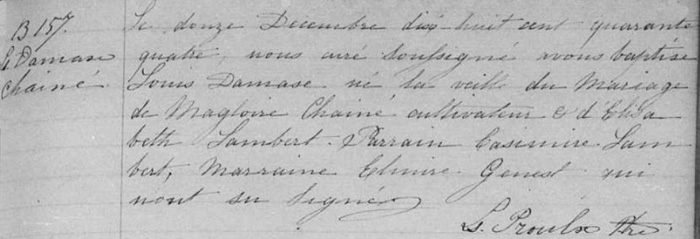 B 157.
Ls Damase
Chainé.
Le douze Decembre dix-huit cent quarante
quatre, nous curé soussigné avons baptisé
Louis Damase né la veille du Mariage
de Magloire Chainé cultivateur & d'Elisa
beth Lambert. Parrain Casimire Lam
bert, Marraine Elmire Genest qui
n'ont su signé
L. Proulx Ptre.